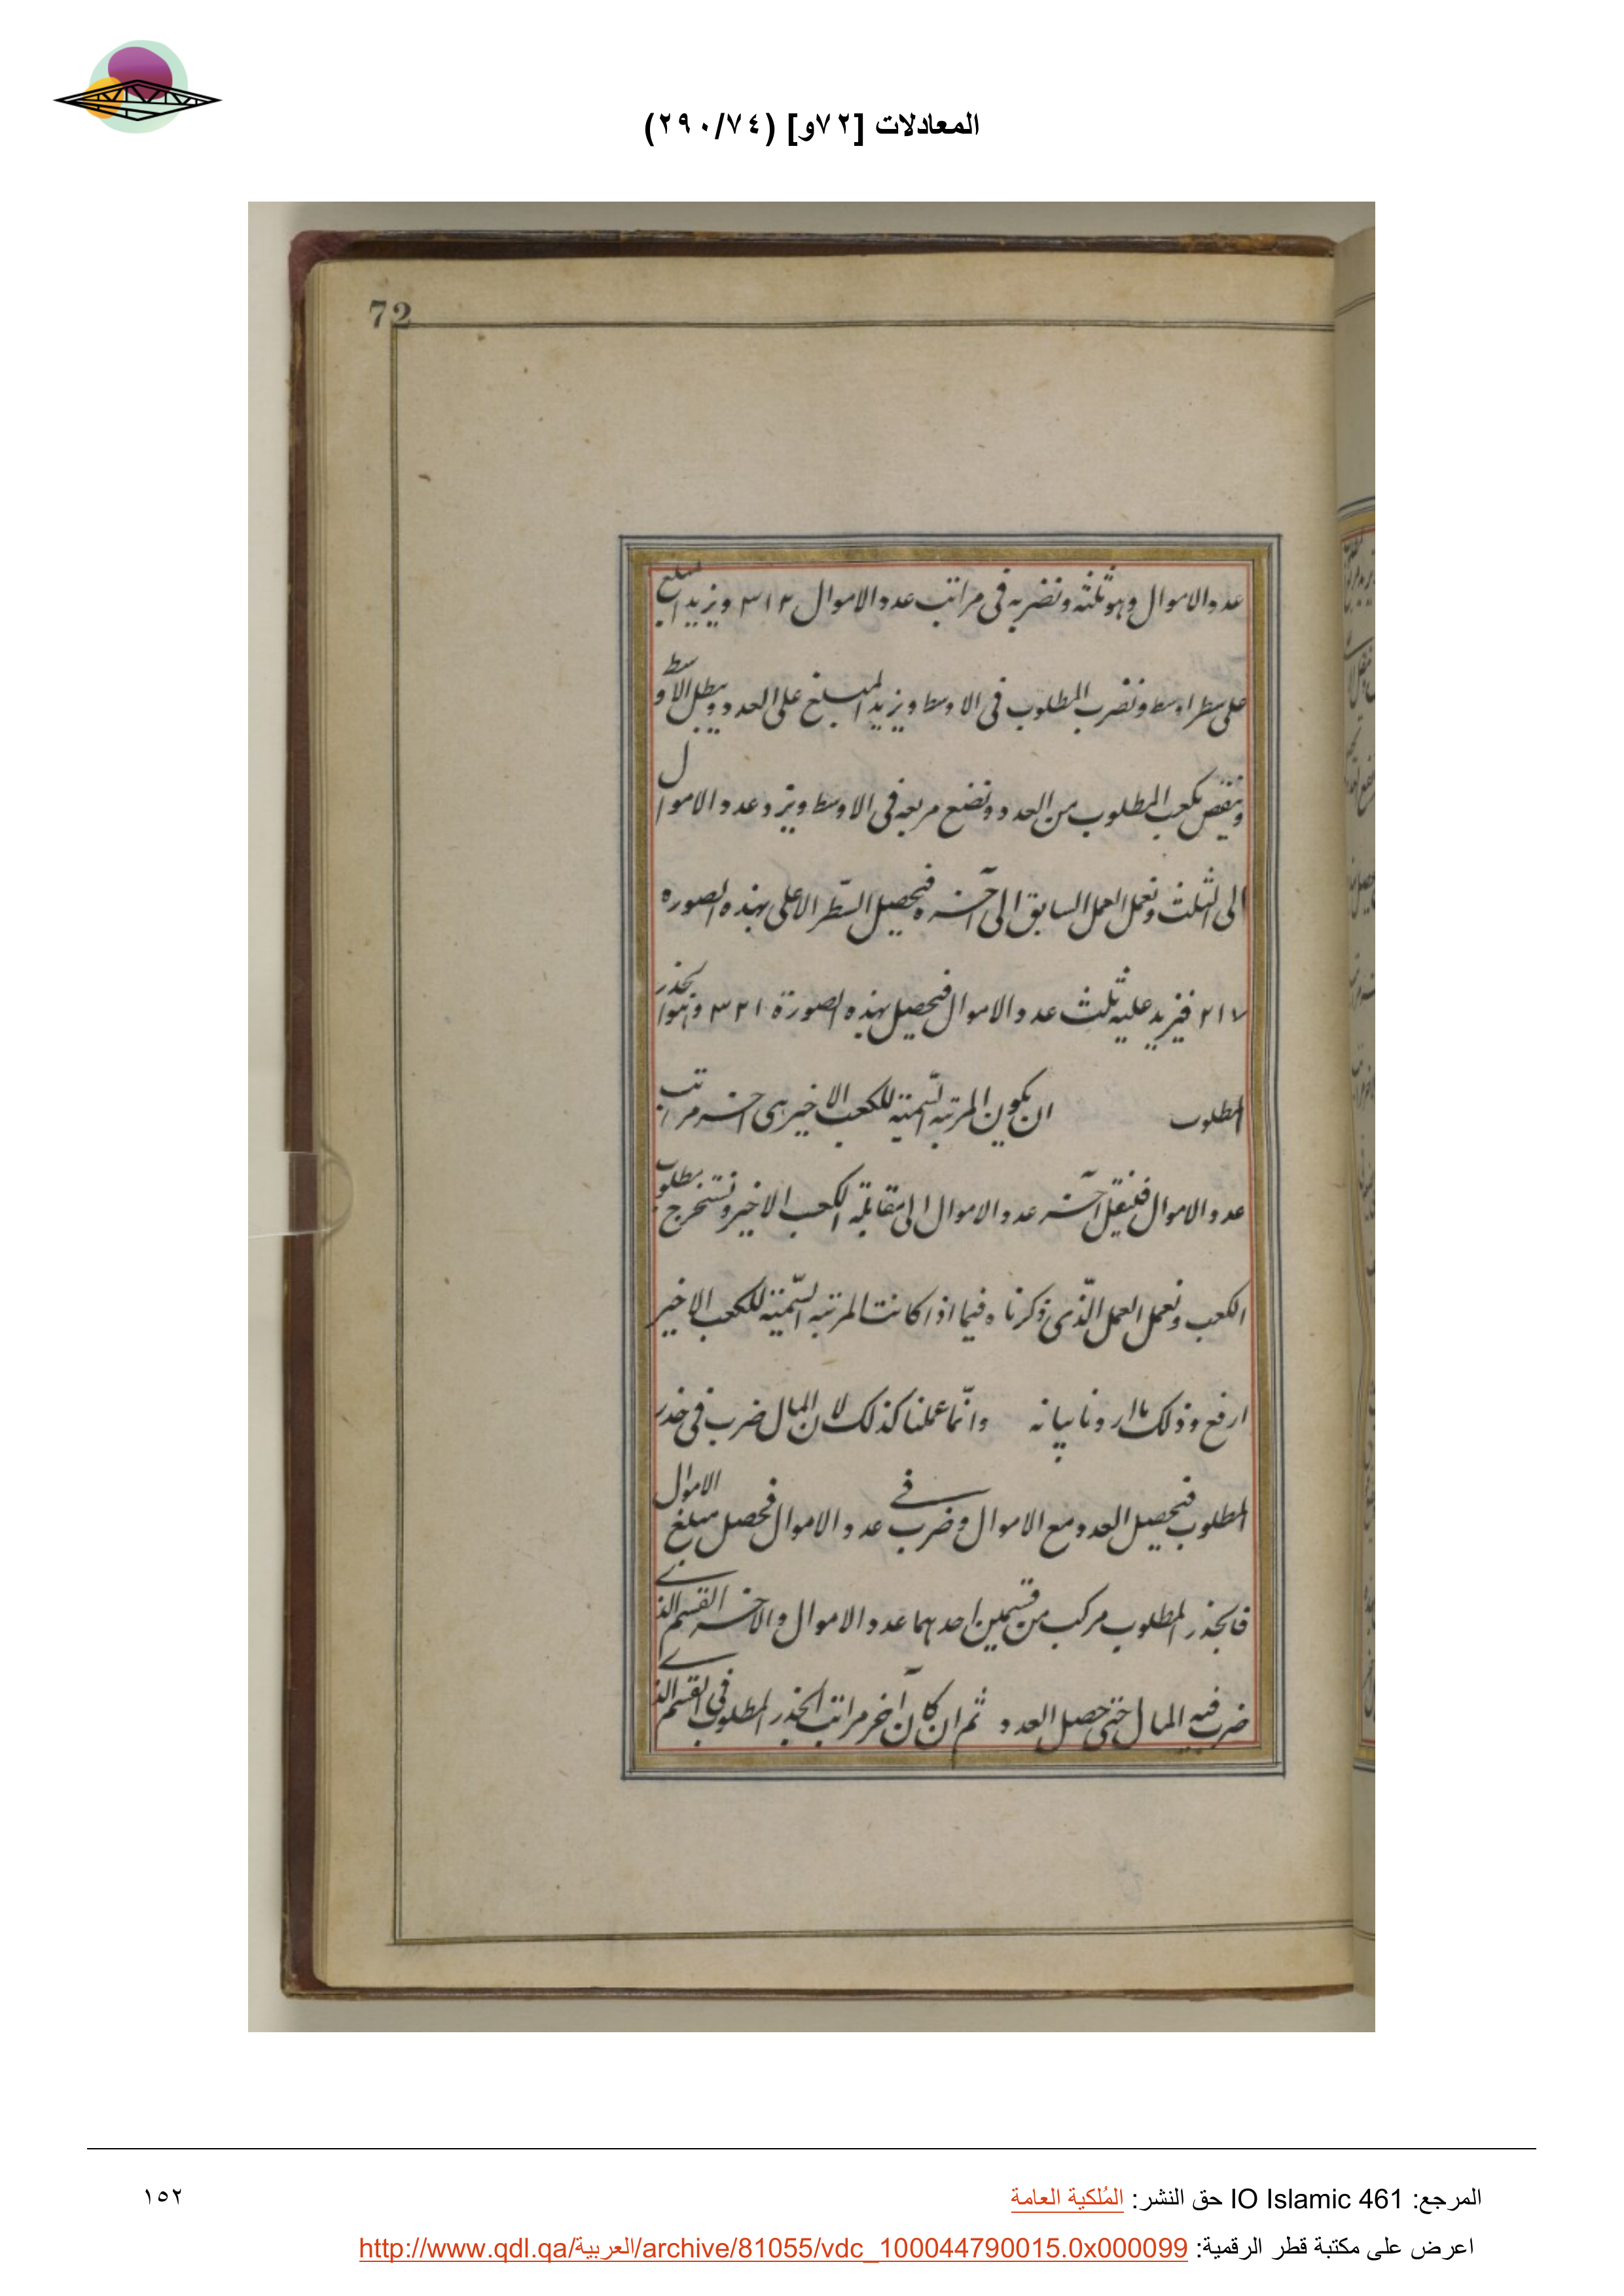 المعادلات [٧٢و] (٢٩٠/٧٤)
72
عدد الاموال وهو ثلثه ونضربه فى مراتب عدد الاموال ٣١٢ ونزيد المبلغ
على سطر اوسط ونضرب المطلوب فى الاوسط ونزيد المبلغ على العدد ونبطل الاوسط
وننقص مكعب المطلوب من العدد ونضع مربعه فى الاوسط ونرد عدد الاموال
الى الثلث ونعمل العمل السابق الى آخره فيحصل السّطر الاعلى بهذه الصوره
٢١٧ فنزيد عليه ثلث عدد الاموال فيحصل بهذه الصورة ٣٢١ وهو الجذر
المطلوب ان يكون المرتبه السّميّة للكعب الاخير هى اخر مراتب
عدد الاموال فلينقل آخر عدد الاموال الى مقابلة الكعب الاخير ونستخرج مطلوب
الكعب ونعمل العمل الذّى ذكرناه فيما اذا كانت المرتبه السّميّة للكعب الاخير
ارفع وذلك ما اردنا بيانه وانّما عملنا كذلك لان المال ضرب فى جذر
المطلوب فيحصل العدد مع الاموال وضرب فى عدد الاموال فحصل مبلغ الاموال
فالجذر المطلوب مركب من قسمين احدهما عدد الاموال والاخر القسم الذى
ضرب فيه المال حتى حصل العدد ثم ان كان آخر مراتب الجذر المطلوب فى القسم الذى
المرجع: IO Islamic 461 حق النشر: المُلكية العامة
١٥٢
اعرض على مكتبة قطر الرقمية: http://www.qdl.qa/العربية/archive/81055/vdc_100044790015.0x000099